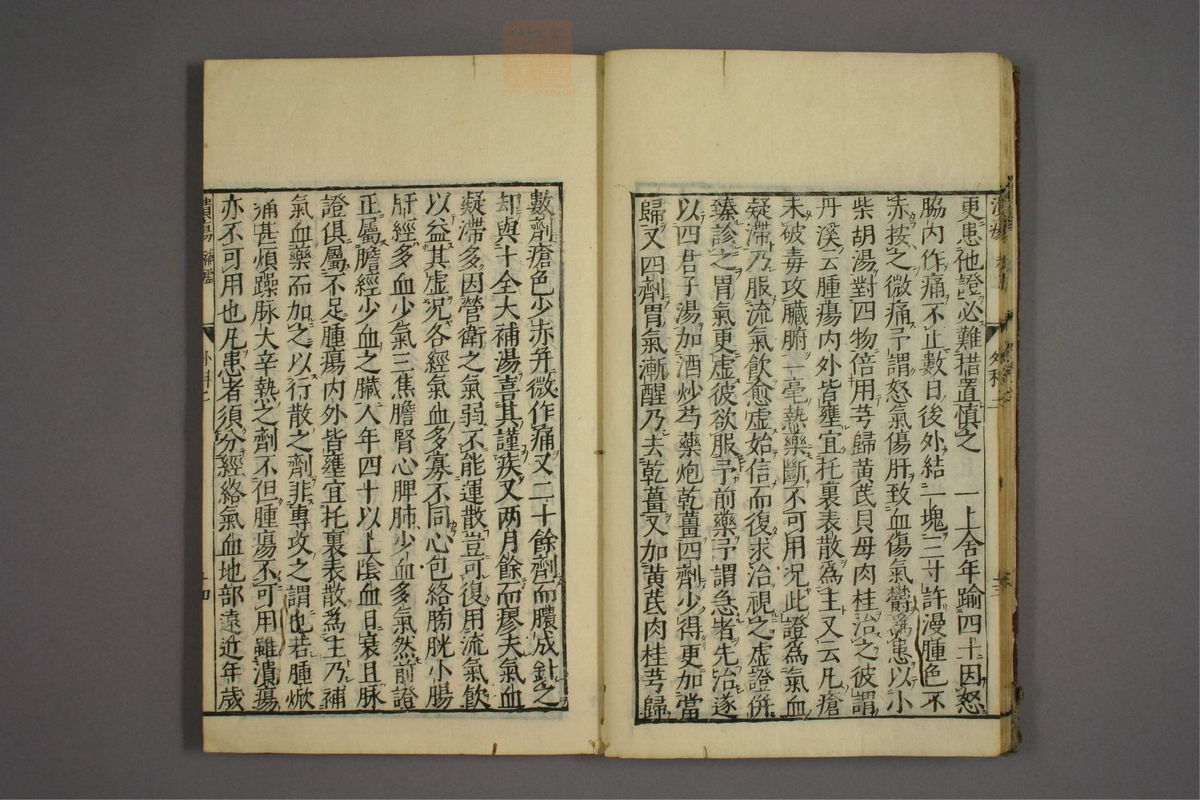 更患他證必難措置慎之　一上舍年踰四十因怒
脇内作痛不止數日後外結一塊三寸許漫腫色不
赤按之微痛予謂怒氣傷肝致血傷氣鬱爲患以小
柴胡湯對四物倍用芎歸黄芪貝母肉桂治之彼謂
丹溪云腫瘍内外皆壅宜托裏表散爲主又云凡瘡
未破毒攻臟腑一毫熱藥斷不可用况此證爲氣血
凝滯乃服流氣飲愈虚始信而復求治視之虚證併
臻診之胃氣更虚彼欲服予前藥予謂急者先治遂
以四君子湯加酒炒芍藥炮乾薑四劑少得更加當
歸又四劑胃氣漸醒乃去乾薑又加黄芪肉桂芎歸
數劑瘡色少赤并微作痛又二十餘劑而膿成針之
却與十全大補湯喜其謹疾又两月餘而瘳夫氣血
凝滯多因營衛之氣弱不能運散豈可復用流氣飲
以益其虚况各經氣血多寡不同心包絡膀胱小腸
肝經多血少氣三焦膽腎心脾肺少血多氣然前證
正屬膽經少血之臟人年四十以上陰血日衰且脉
證俱屬不足腫瘍内外皆壅宜托裏表散爲主乃補
氣血藥而加之以行散之劑非專攻之謂也若腫焮
痛甚煩躁脉大辛熱之劑不但腫瘍不可用雖潰瘍
亦不可用也凡患者須分經絡氣血地部遠近年歲